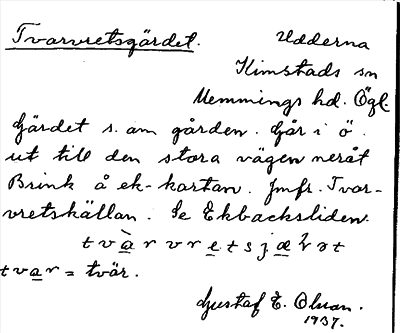 Tvarvretsgärdet. Udderna
Kimstads sn
Memmings hd. Ögl.
Gärdet s. om gården. Går i ö.
ut till den stora vägen neråt
Brink å ek-kartan. Jmfr. Tvar-
vretskällan. Se Ekbacksliden.
tvàrvretsjæ̀ɽət
tvar = tvär.
Gustaf E. Olsson.
1937.